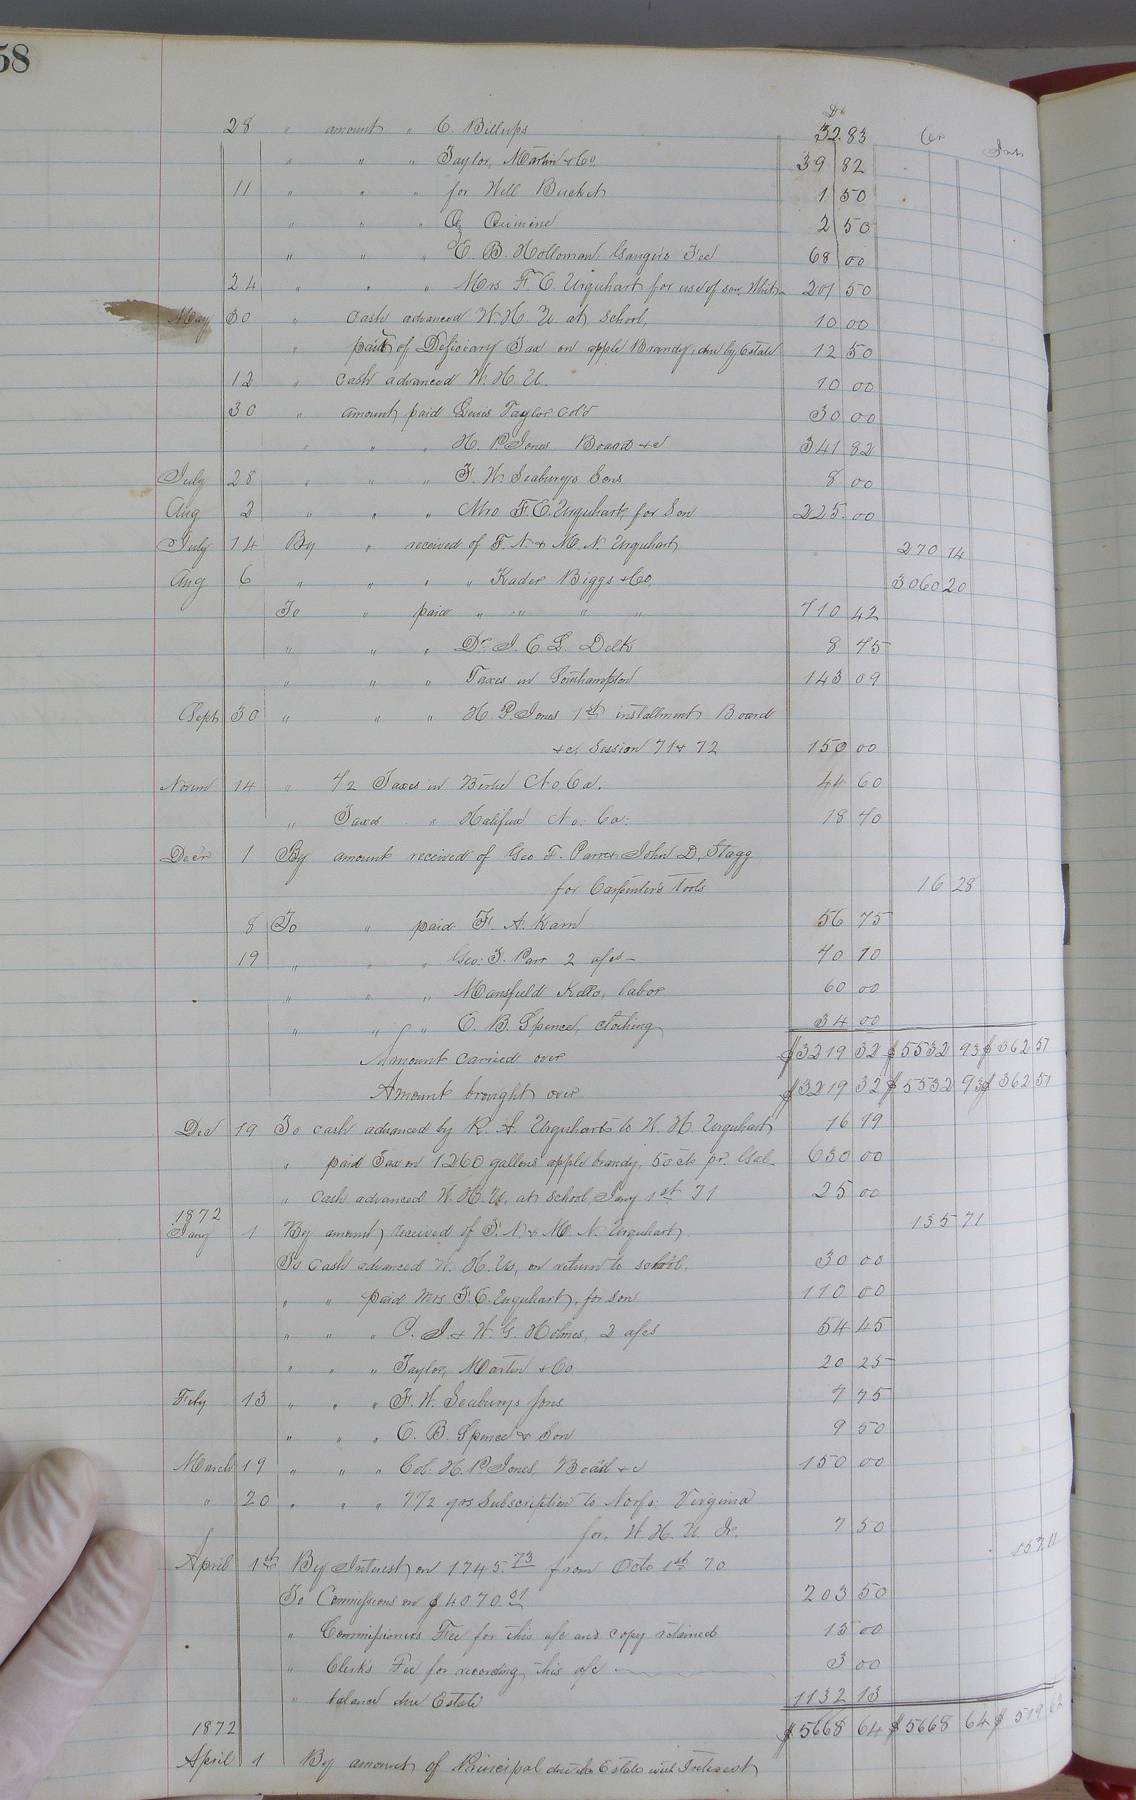 58
Dr Cr Int
28 " amount " C. Billups 32.83
" " " Taylor, Martin & Co. 39 82
11 " " " for Well Bucket 1 50
" " " 2 50
" " " E. B. Holloman, Gauger's Fee 68 00
24 " " " Mrs F. E. Urquhart for use of son 201 50
May 30 " cash advanced W. H. U. at School, 10 00
" paid of Deficiency Tax on apple Brandy, due by Estate 12 50
12 " cash advanced W. H. U. 10 00
30 " amount paid Lewis Taylor col'd 30 00
" " " H. P. Jones Board &c 341 82
July 28 " " " F. W. Seabury's Sons 8 00
Aug 2 " " " Mrs F. E. Urquhart, for Son 225.00
July 14 By " received of F. N. & M. N. Urquhart 270 14
Aug 6 " " " " Kader Biggs & Co. 3060 20
To " paid " " " " 710 42
" " " Dr. J. E. L. Delk 8 75
" " " Taxes in Southampton 143 09
Sept 30 " " " H. P. Jones 1st installment Board
&c, Session 71 & 72 150 00
Novem 14 " 1/2 Taxes in Bertie No. Ca. 44 60
" Taxes " Halifax No. Ca: 18 40
Decr 1 By amount received of Geo F. Parr & John D. Stagg
for Carpenter's Tools 16 28
8 To " paid F. A. Kam 56 75
19 " " " Geo: F. Parr 2 a/cs 40 10
" " " Mansfield Kello, labor 60 00
" " " C. B. Spence, clothing 34 00
Amount carried over $3219 32 $5532 93 $362 51
Amount brought over $3219 32 $5532 93 $362 51
Dec 19 To cash advanced by R. A. Urquhart to W. H. Urquhart 16 19
" paid Tax on 1260 gallons apple brandy, 50 cts pr. Gal. 630 00
" cash advanced W. H. U, at school, Jany 1st 71 25 00
1872
Jany 1 By amount received of F. N. & M. N. Urquhart 135 71
To cash advanced W. H. U, on return to school. 30 00
" " paid Mrs F. E. Urquhart, for son 110 00
" " " P. J. & W. G. Holmes, 2 a/cs 54 45
" " " Taylor, Martin & Co 20 25
Feby 13 " " " F. W. Seaburys Sons 7 75
" " " C. B. Spence & Son 9 50
March 19 " " " Col. H. P. Jones, Board &c 150 00
" 20 " " " 1 1/2 yrs Subscription to Norfo: Virginia
for W H. U Jr. 7 50
April 1st By Interest on 1745.73 from Octo 1st 70 157 11
To Commissions on $4070.01 203 50
" Commissioners Fee for this a/c and copy retained 15 00
" Clerk's Fee for recording this a/c 3 00
" balance due Estate 1132 18
1872 $5668 64 $5668 64 $519 62
April 1 By amount of Principal due the Estate with Interest